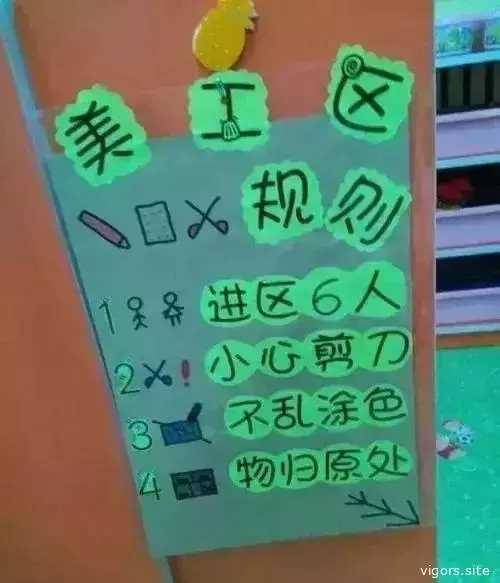 美工区
规则
1 进区6人
2 小心剪刀
3 不乱涂色
4 物归原处
vigors.site